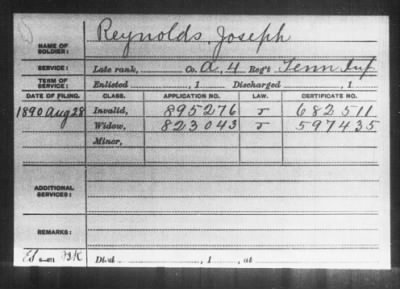 NAME OF SOLDIER: Reynolds, Joseph
SERVICE: Late rank, Co. A, 4 Reg't Tenn Inf
TERM OF SERVICE: Enlisted , 1 Discharged , 1
DATE OF FILING. CLASS. APPLICATION NO. LAW. CERTIFICATE NO.
1890 Aug 28 Invalid, 895276 J 682511
Widow, 823043 J 597435
Minor,
ADDITIONAL SERVICES:
REMARKS:
Died , 1 , at